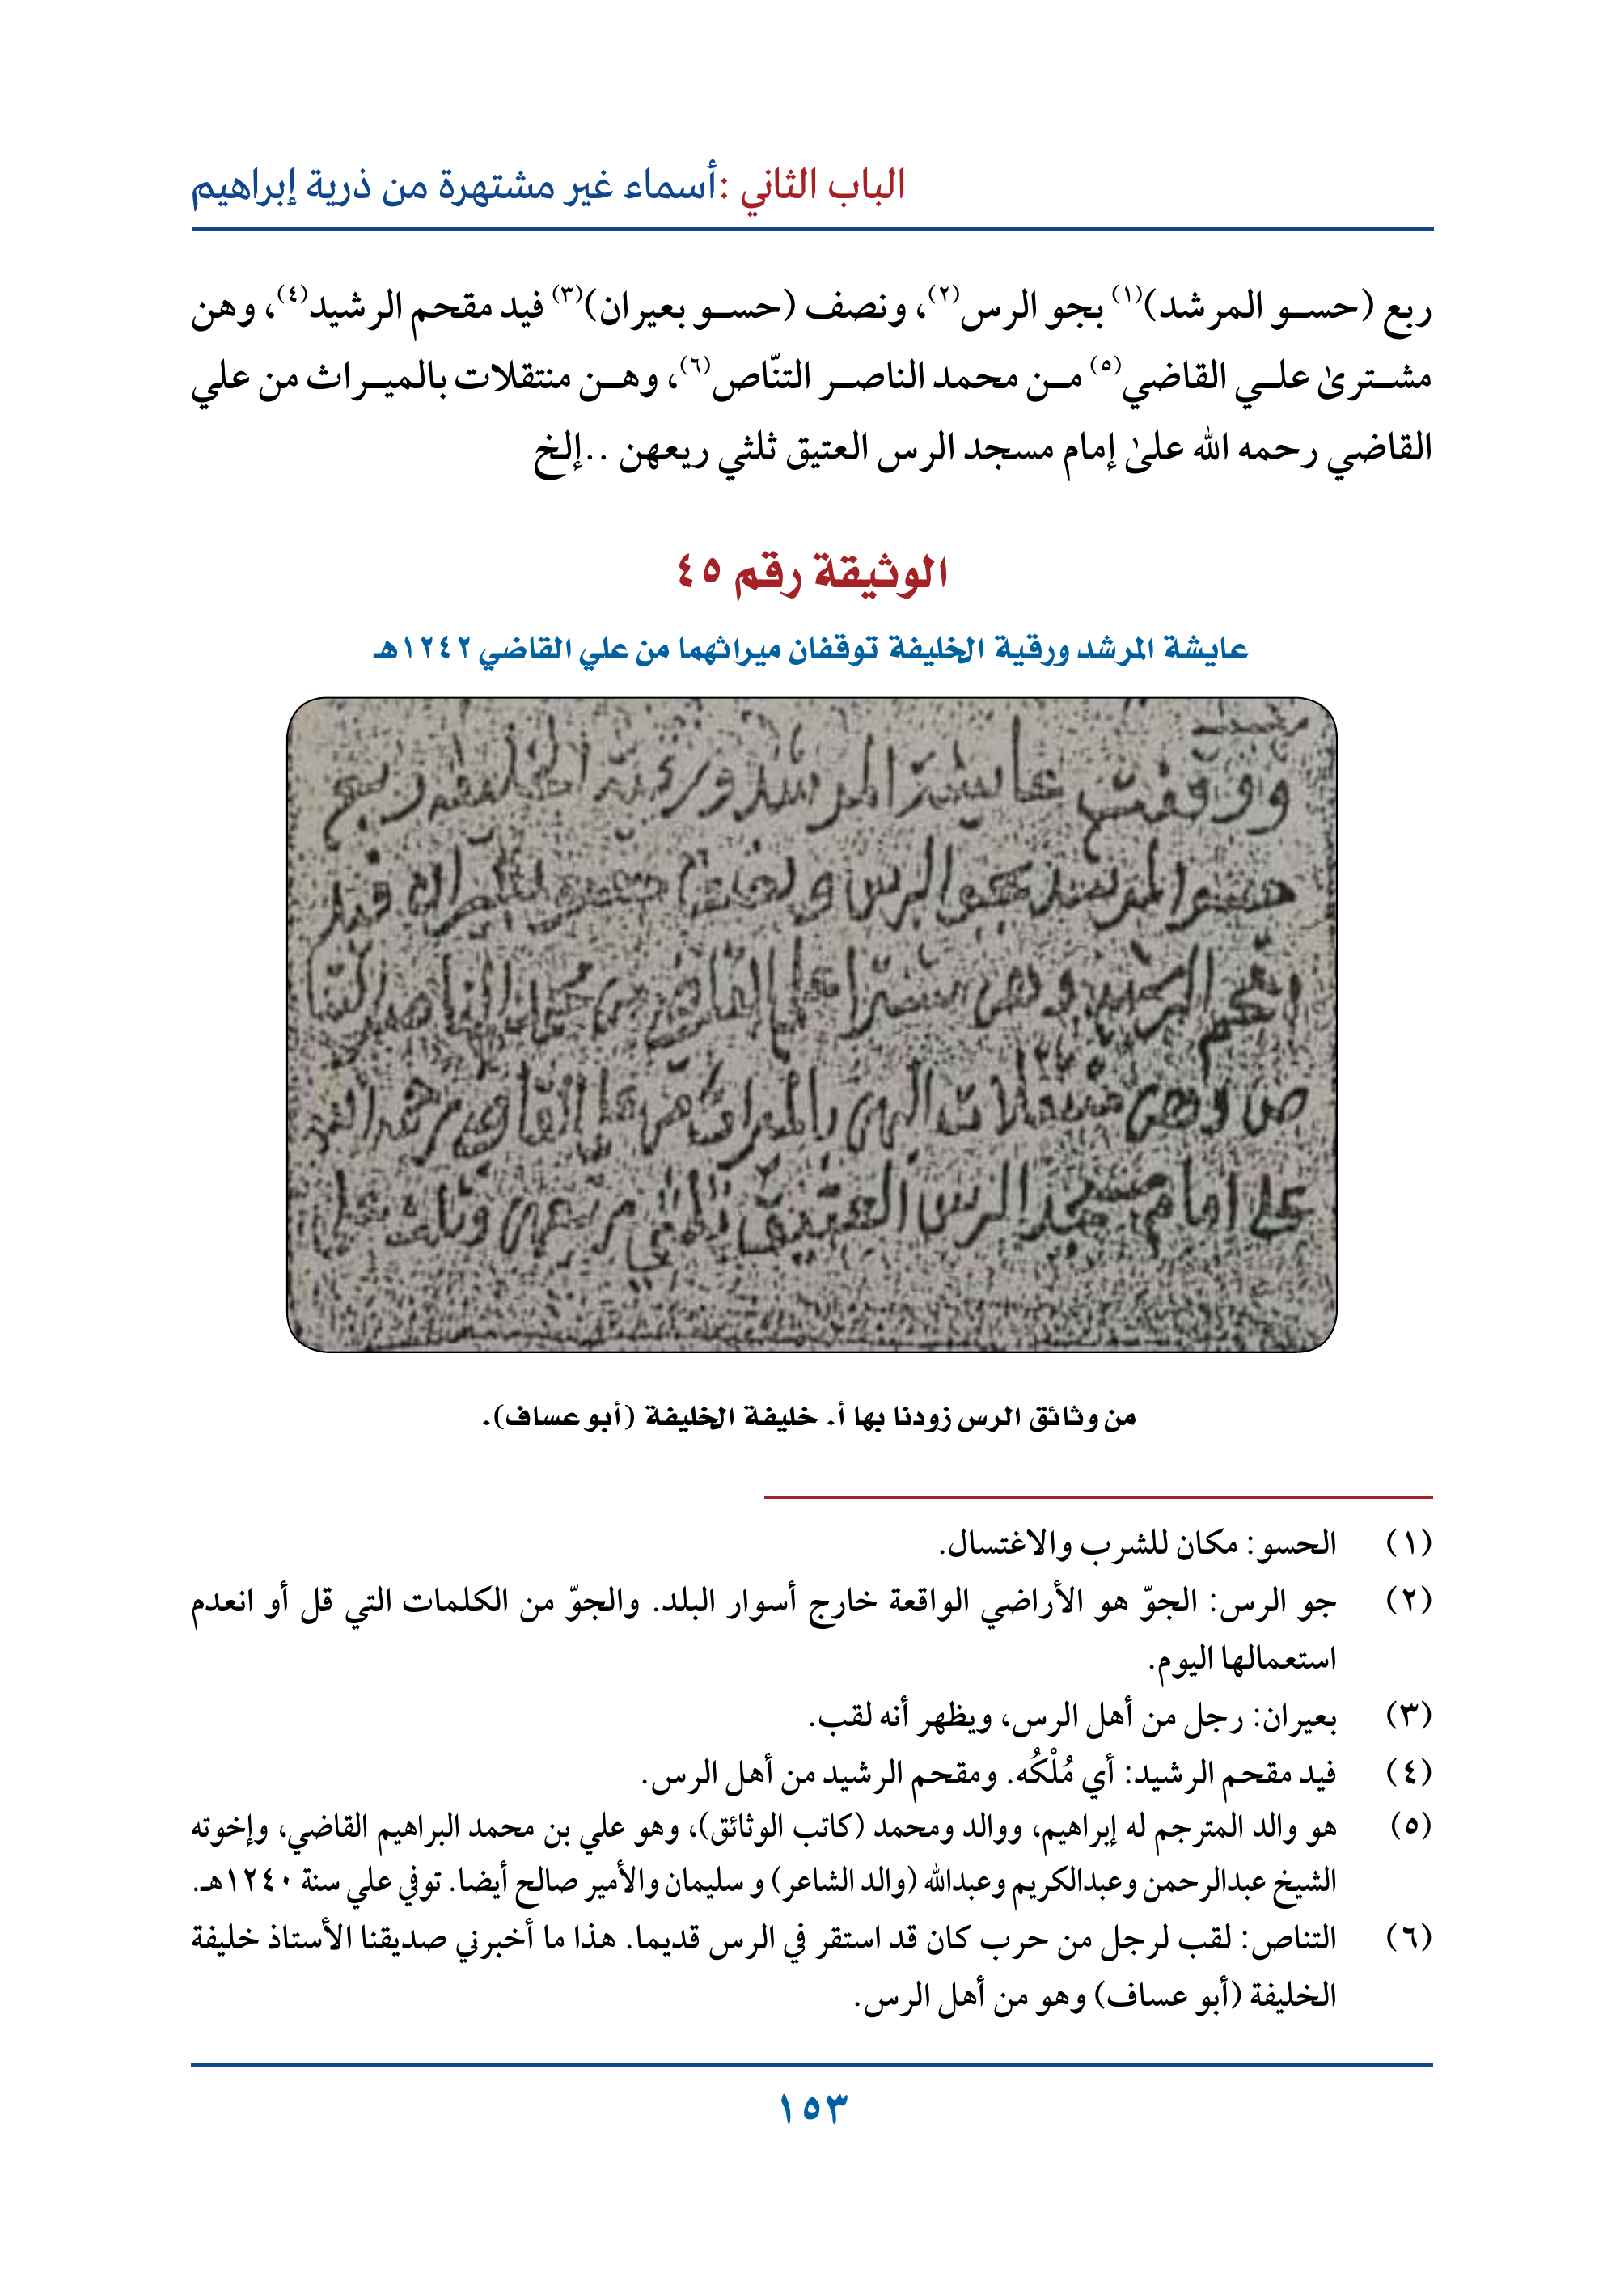 الباب الثاني :أسماء غير مشتهرة من ذرية إبراهيم
ربع (حسو المرشد)(١) بجو الرس(٢)، ونصف (حسو بعيران)(٣) فيد مقحم الرشيد(٤)، وهن
مشترىٰ علي القاضي(٥) من محمد الناصر التنّاص(٦)، وهن منتقلات بالميراث من علي
القاضي رحمه الله علىٰ إمام مسجد الرس العتيق ثلثي ريعهن ..إلخ
الوثيقة رقم ٤٥
عايشة المرشد ورقية الخليفة توقفان ميراثهما من علي القاضي ١٢٤٢هـ
ووقفت عايشة المرشد ورقية الخليفه ربع
حسو المرشد بجو الرس ونصف حسو بعيران فيد
مقحم الرشيد وهن مشرا علي القاضي من محمد الناصر التنا
ص وهن منتقلات الهن بالميراث من علي القاضي رحمه الله
على امام مسجد الرس العتيق ثلثي ريعهن وثلث على
من وثائق الرس زودنا بها أ. خليفة الخليفة (أبو عساف).
(١) الحسو: مكان للشرب والاغتسال.
(٢) جو الرس: الجوّ هو الأراضي الواقعة خارج أسوار البلد. والجوّ من الكلمات التي قل أو انعدم
استعمالها اليوم.
(٣) بعيران: رجل من أهل الرس، ويظهر أنه لقب.
(٤) فيد مقحم الرشيد: أي مُلْكُه. ومقحم الرشيد من أهل الرس.
(٥) هو والد المترجم له إبراهيم، ووالد ومحمد (كاتب الوثائق)، وهو علي بن محمد البراهيم القاضي، وإخوته
الشيخ عبدالرحمن وعبدالكريم وعبدالله (والد الشاعر) و سليمان والأمير صالح أيضا. توفي علي سنة ١٢٤٠هـ.
(٦) التناص: لقب لرجل من حرب كان قد استقر في الرس قديما. هذا ما أخبرني صديقنا الأستاذ خليفة
الخليفة (أبو عساف) وهو من أهل الرس.
١٥٣